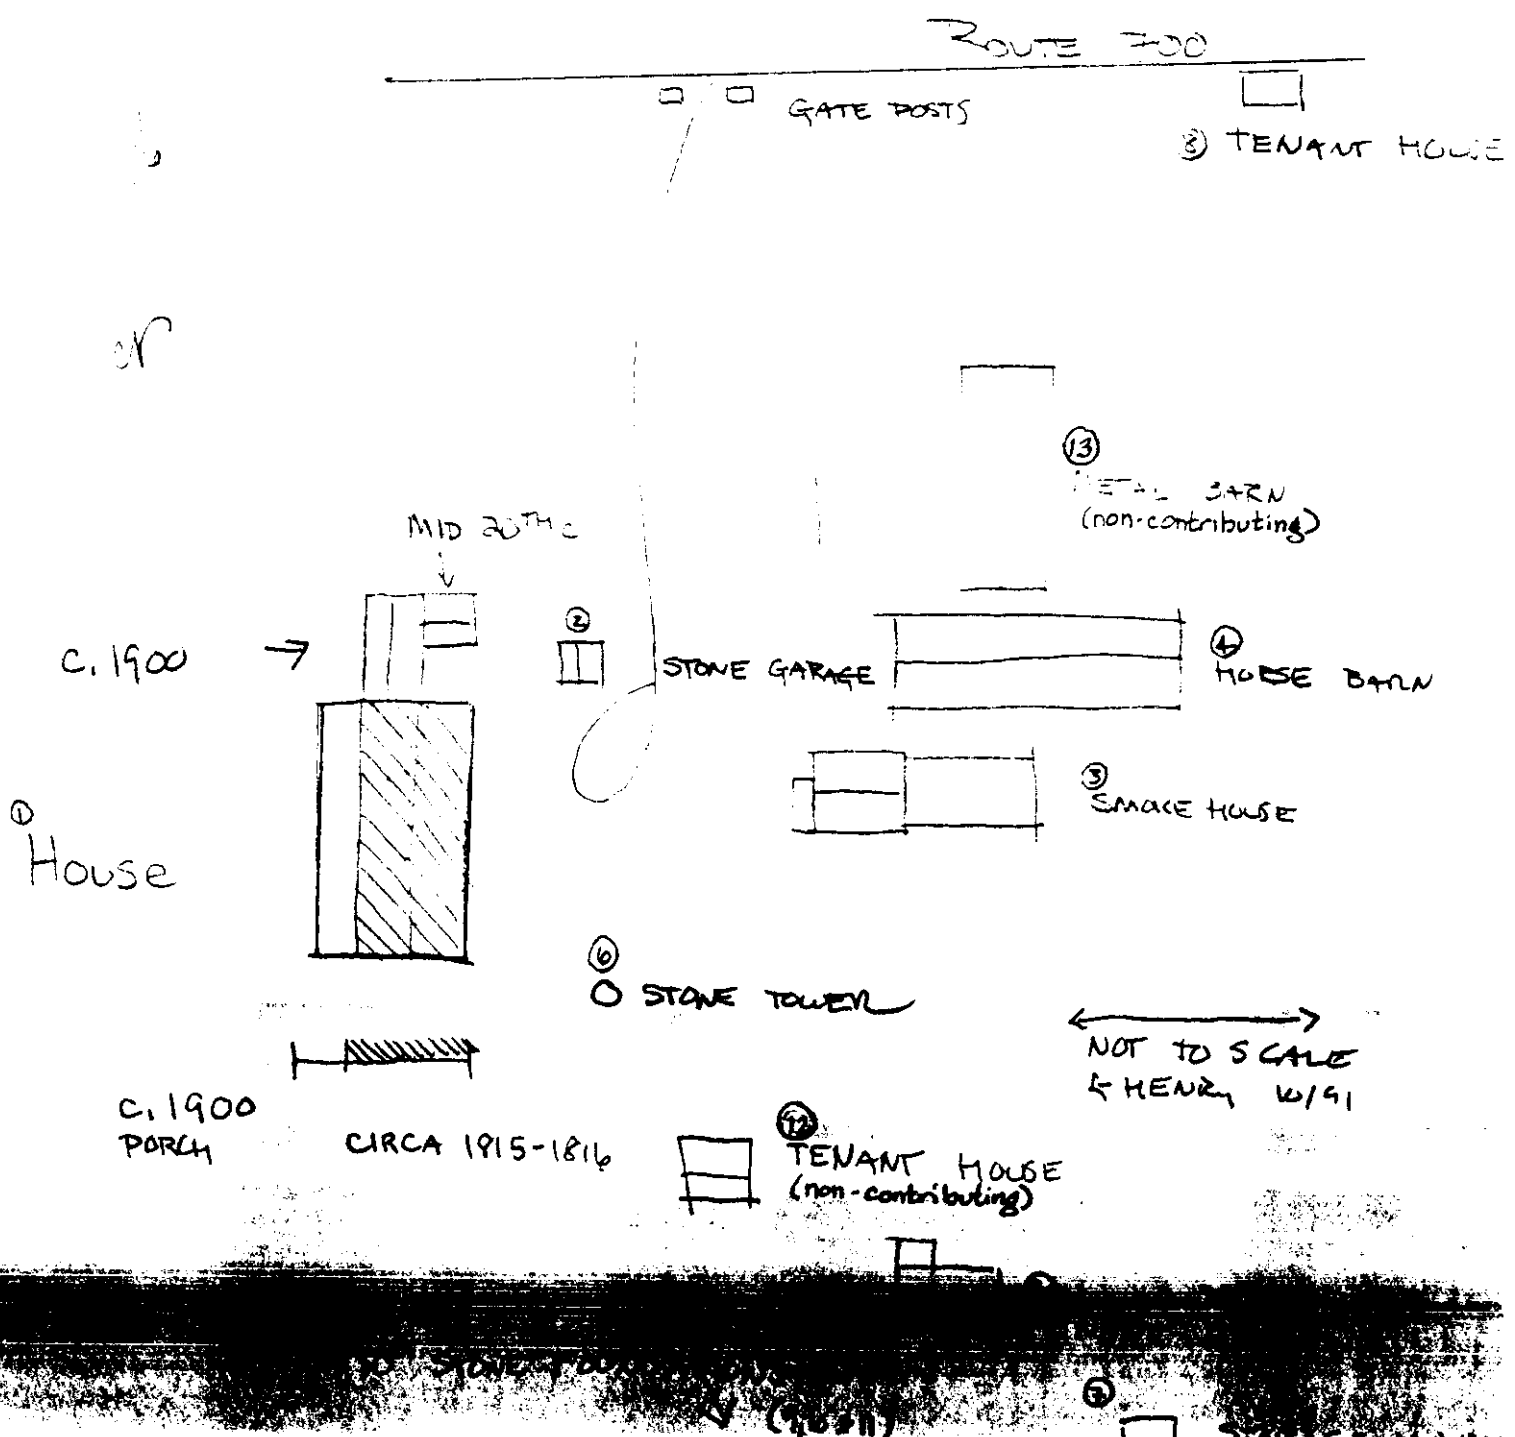 ROUTE 700
GATE POSTS
⑧ TENANT HOUSE
N
⑬
METAL BARN
(non-contributing)
MID 20TH C
c. 1900 →
②
STONE GARAGE
④
HORSE BARN
③
SMOKE HOUSE
①
House
⑥
STONE TOWER
NOT TO SCALE
HENRY 10/91
c. 1900
PORCH
CIRCA 1915-1816
⑫
TENANT HOUSE
(non-contributing)
TO STONE FOUNDATIONS
⑦